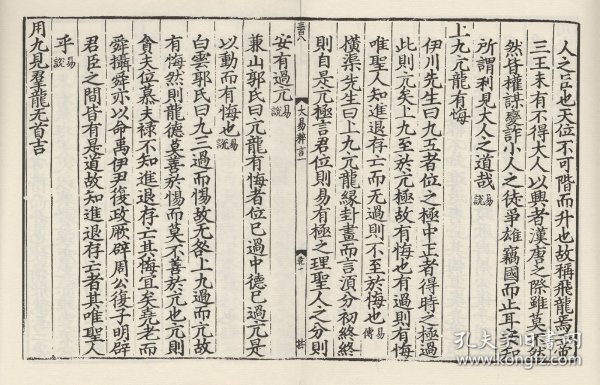 人之言也天位不可階而升也故稱飛龍焉
三王未有不得大人以興者漢唐之際雖莫然
然皆權謀變詐小人之徒爭雄竊國而止耳安知
所謂利見大人之道哉易說
上九亢龍有悔
伊川先生曰九五者位之極中正者得時之極過
此則亢矣上九至於亢極故有悔也有過則有悔
唯聖人知進退存亡而无過則不至於悔也易傳
橫渠先生曰上九亢龍緣卦畫而言須分初終終
則自是亢極言君位則易有極之理聖人之分則
大易粹言一
安有過亢易說
兼山郭氏曰亢龍有悔者位已過中德已過亢是
以動而有悔也易說
白雲郭氏曰九三過而惕故无咎上九過而亢故
有悔然則龍德莫善於惕而莫不善於亢也亢則
貪夫位慕夫祿不知進退存亡其悔宜矣堯老而
舜攝舜亦以命禹伊尹復政厥辟周公復子明辟
君臣之間皆有是道故知進退存亡者其唯聖人
乎易說
用九見羣龍无首吉
孔夫子旧书网